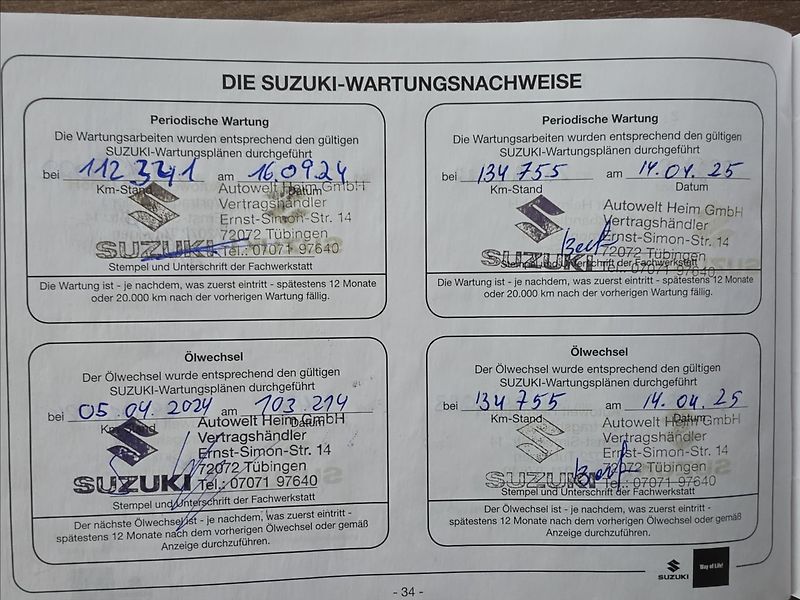 DIE SUZUKI-WARTUNGSNACHWEISE
Periodische Wartung
Die Wartungsarbeiten wurden entsprechend den gültigen
SUZUKI-Wartungsplänen durchgeführt
bei 112 341 am 16.09.24
Km-Stand Datum
Autowelt Heim GmbH
Vertragshändler
Ernst-Simon-Str. 14
72072 Tübingen
SUZUKI Tel.: 07071 97640
Stempel und Unterschrift der Fachwerkstatt
Die Wartung ist - je nachdem, was zuerst eintritt - spätestens 12 Monate
oder 20.000 km nach der vorherigen Wartung fällig.
Periodische Wartung
Die Wartungsarbeiten wurden entsprechend den gültigen
SUZUKI-Wartungsplänen durchgeführt
bei 134 755 am 14.04.25
Km-Stand Datum
Autowelt Heim GmbH
Vertragshändler
Ernst-Simon-Str. 14
72072 Tübingen
SUZUKI Tel.: 07071 97640
Stempel und Unterschrift der Fachwerkstatt
Die Wartung ist - je nachdem, was zuerst eintritt - spätestens 12 Monate
oder 20.000 km nach der vorherigen Wartung fällig.
Ölwechsel
Der Ölwechsel wurde entsprechend den gültigen
SUZUKI-Wartungsplänen durchgeführt
bei 05.04.2024 am 103.214
Km-Stand Datum
Autowelt Heim GmbH
Vertragshändler
Ernst-Simon-Str. 14
72072 Tübingen
SUZUKI Tel.: 07071 97640
Stempel und Unterschrift der Fachwerkstatt
Der nächste Ölwechsel ist - je nachdem, was zuerst eintritt -
spätestens 12 Monate nach dem vorherigen Ölwechsel oder gemäß
Anzeige durchzuführen.
Ölwechsel
Der Ölwechsel wurde entsprechend den gültigen
SUZUKI-Wartungsplänen durchgeführt
bei 134 755 am 14.04.25
Km-Stand Datum
Autowelt Heim GmbH
Vertragshändler
Ernst-Simon-Str. 14
72072 Tübingen
SUZUKI Tel.: 07071 97640
Stempel und Unterschrift der Fachwerkstatt
Der Ölwechsel ist - je nachdem, was zuerst eintritt -
spätestens 12 Monate nach dem vorherigen Ölwechsel oder gemäß
Anzeige durchzuführen.
SUZUKI
Way of Life!
- 34 -